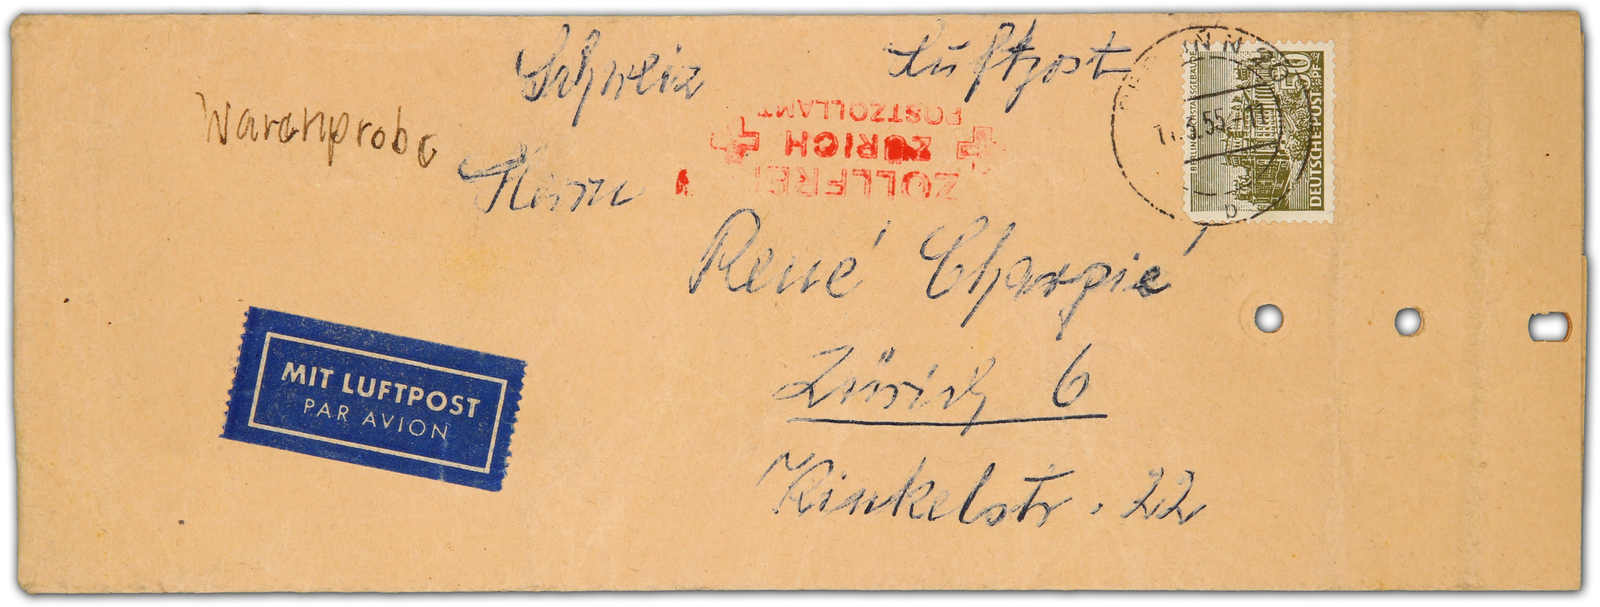 Schweiz Luftpost
Warenprobe
Herrn
ZOLLFREI
ZÜRICH
POSTZOLLAMT
René Charpié
Zürich 6
Kinkelstr. 22
MIT LUFTPOST
PAR AVION
DEUTSCHE POST
BERLIN N 20
.3.55.-11
b